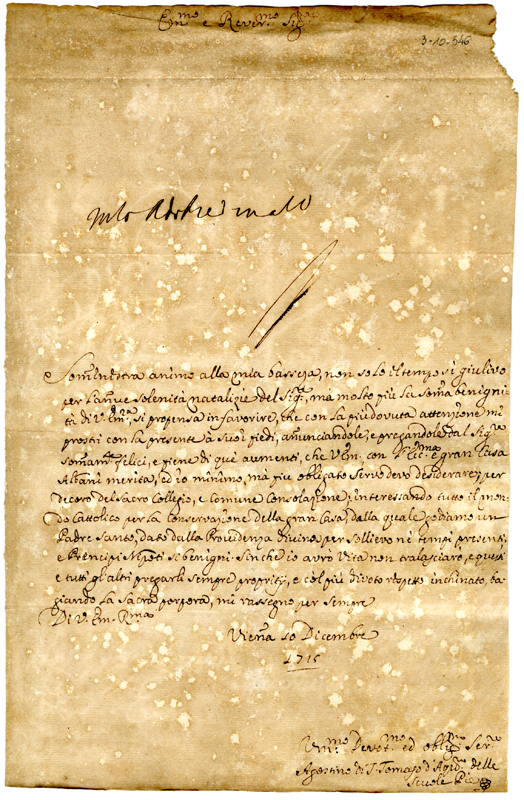 Em.mo e Rever.mo Sig.re
3-10-546
Somministra animo alla mia bassezza, non solo il tempo sì giulivo
per l'annue solenità natalizie del Sig.re, mà molto più la somma benigni-
tà di V. Em.za, si propensa in favorire, che con la più dovuta attenzione mi
prostri con la presente à suoi piedi, annunciandole, e pregandole dal Sig.re
somam.te felici, e piene di què aumenti, che V. Em. con l'Ecc.ma e gran Casa
Albani merita, ed io minimo, mà più obligato servo devo desiderare per
decoro del Sacro Collegio, e comune consolazione; interessando tutto il mon-
do Cattolico per la conservazione della gran Casa, dalla quale godiamo un
Padre Santo, dato dalla Providenza divina per sollievo nè tempi presenti,
e Prencipi Nipoti sì benigni. Sinche io avrò vita non tralasciarò, e questi
e tutti gl'altri pregarli sempre propitij, e col più divoto rispetto inchinato, ba-
ciando la Sacra porpora, mi rassegno per sempre
Di V. Em. R.ma
Vienna 10 Dicembre
1715
Um.mo Devot.mo ed oblig.mo Ser.re
Agostino di S. Tomaso d'Aq.o delle
Scuole Pie